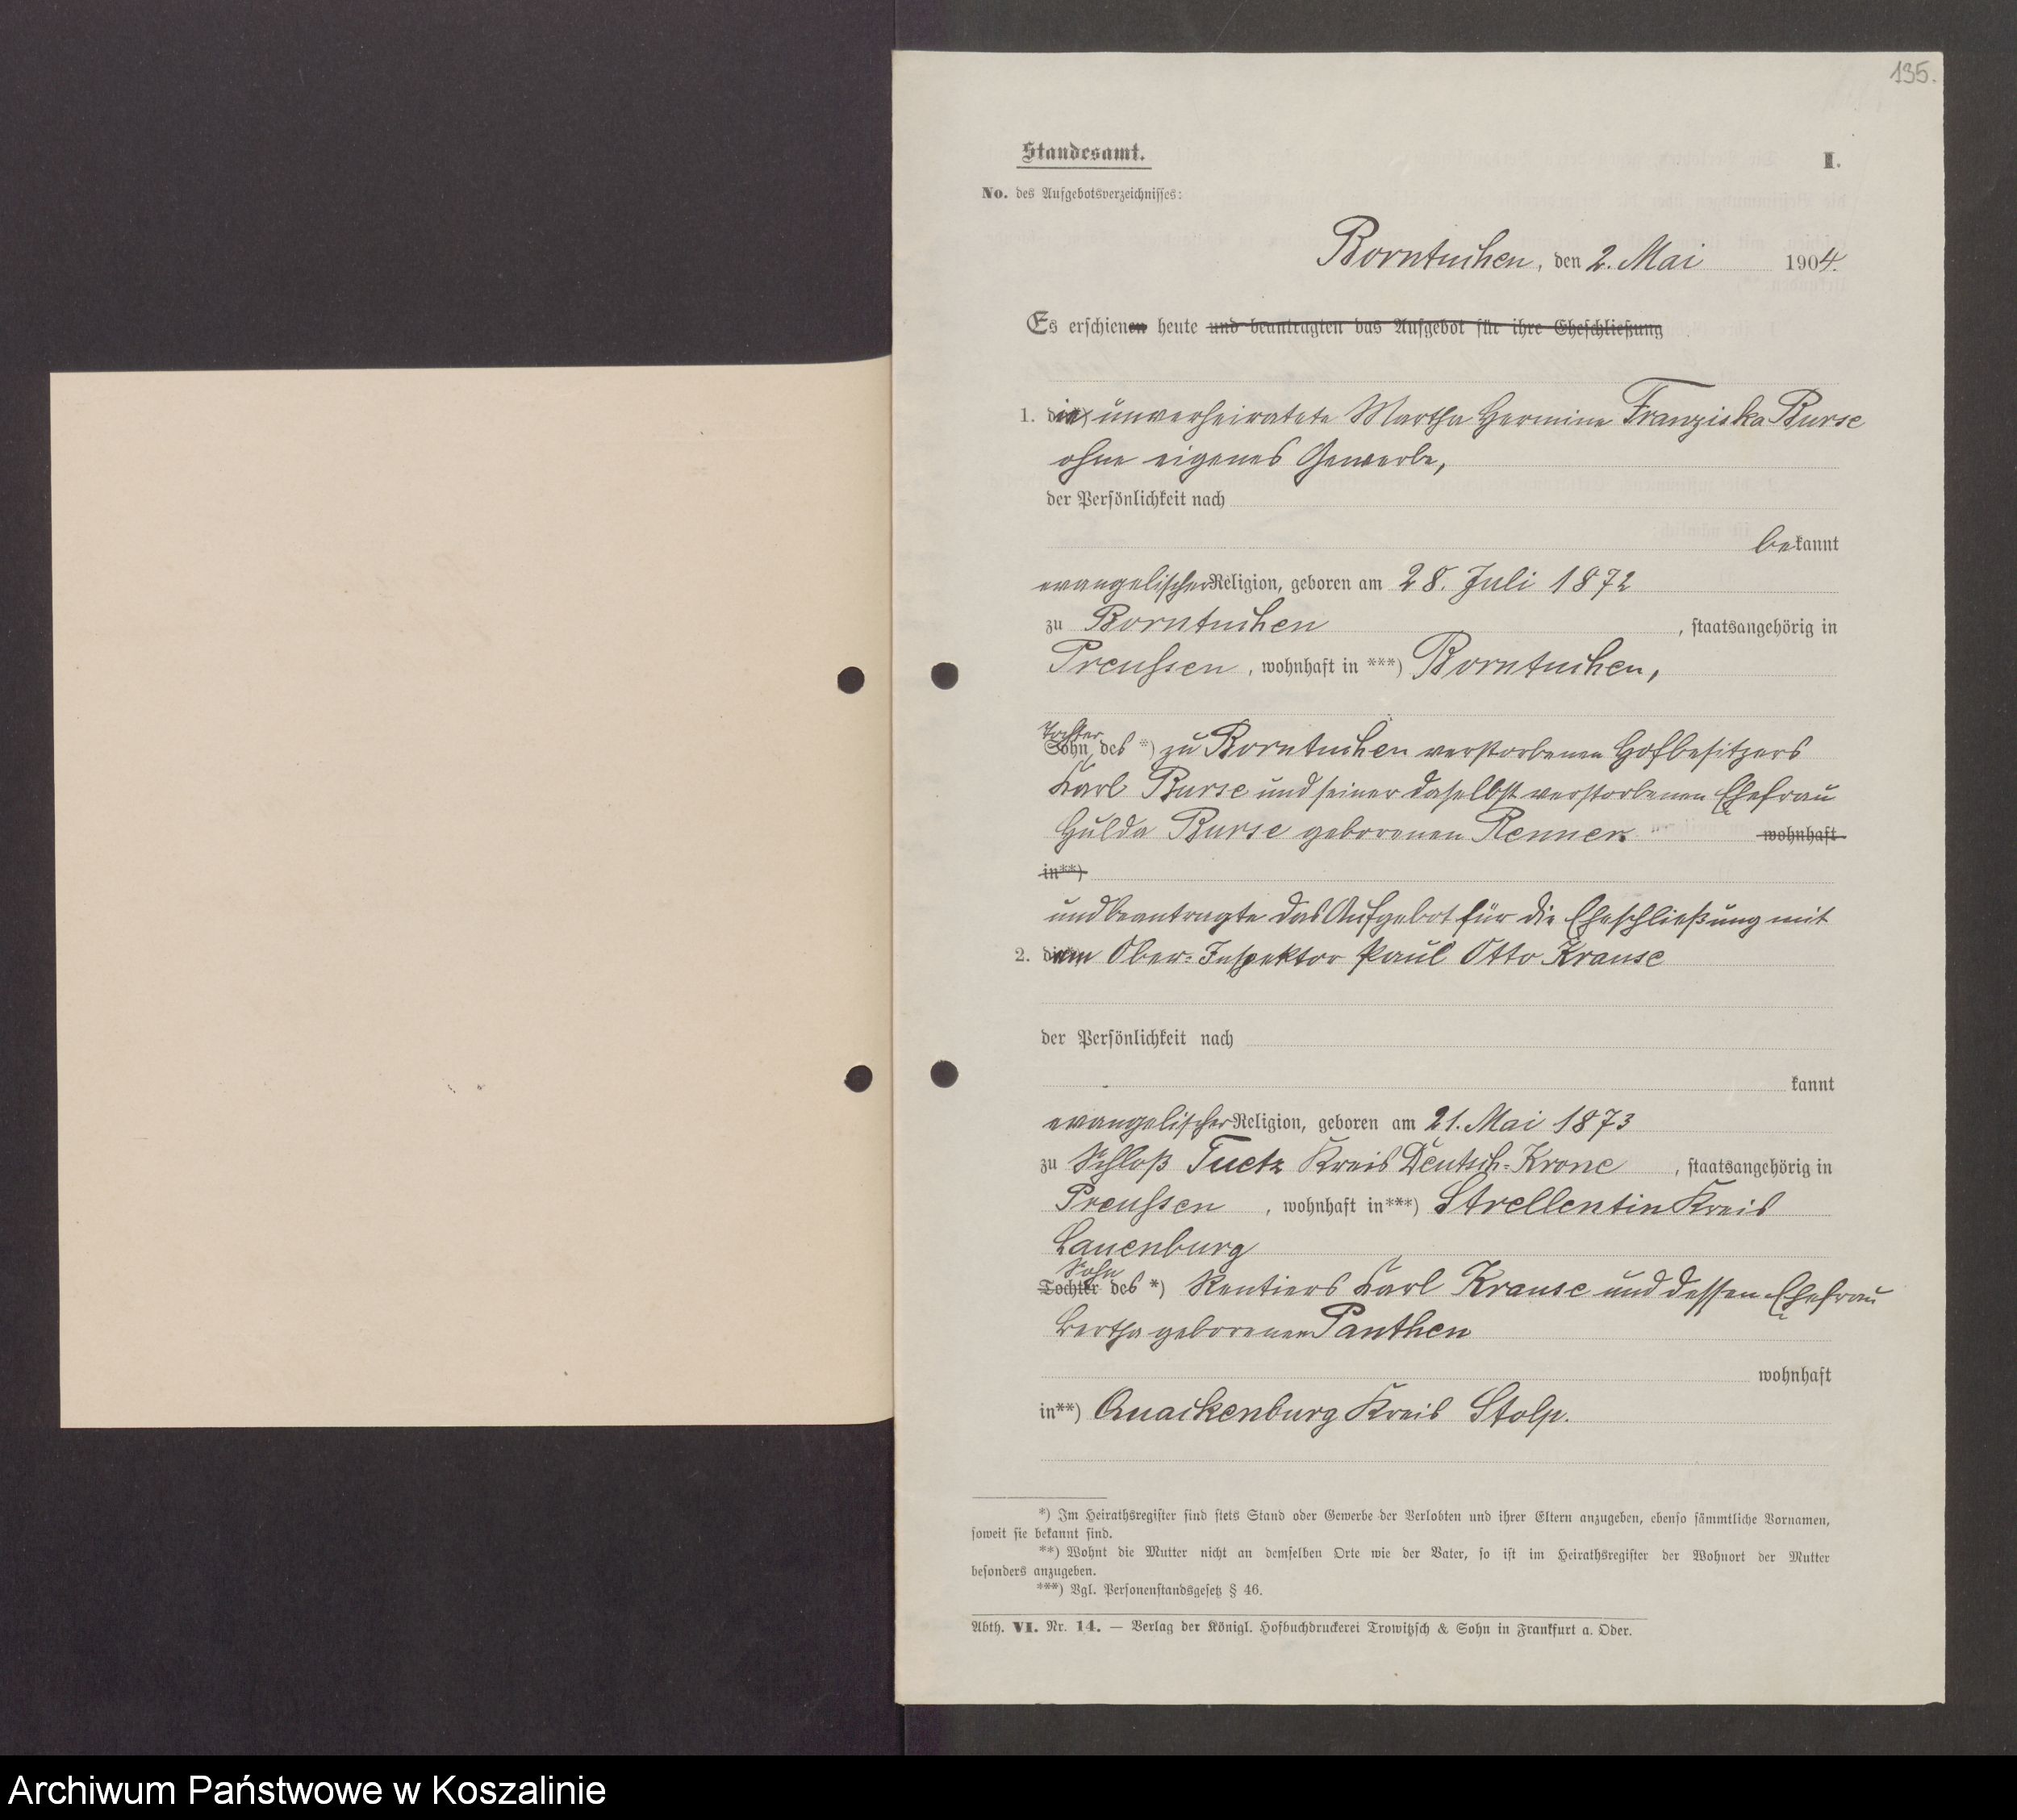 135.
Standesamt.
I.
No. des Aufgebotsverzeichnisses:
Borntuchen, den 2. Mai 1904.
Es erschienen heute und beantragten das Aufgebot für ihre Eheschließung
1. die unverheiratete Martha Hermine Franziska Burse
ohne eigenes Gewerbe,
der Persönlichkeit nach
bekannt
evangelischer Religion, geboren am 28. Juli 1872
zu Borntuchen, staatsangehörig in
Preussen, wohnhaft in ***) Borntuchen,
Tochter
Sohn des *) zu Borntuchen verstorbenen Hofbesitzers
Karl Burse und seiner daselbst verstorbenen Ehefrau
Hulda Burse geborenen Renner. wohnhaft
in**)
und beantragte das Aufgebot für die Eheschließung mit
2. dem Ober-Inspektor Paul Otto Krause
der Persönlichkeit nach
kannt
evangelischer Religion, geboren am 21. Mai 1873
zu Schloß Tuetz Kreis Deutsch-Krone, staatsangehörig in
Preussen, wohnhaft in***) Strellentin Kreis
Lauenburg
Sohn
Tochter des *) Rentiers Karl Krause und dessen Ehefrau
Bertha geborenen Panthen
wohnhaft
in**) Quackenburg Kreis Stolp.
*) Im Heirathsregister sind stets Stand oder Gewerbe der Verlobten und ihrer Eltern anzugeben, ebenso sämmtliche Vornamen,
soweit sie bekannt sind.
**) Wohnt die Mutter nicht an demselben Orte wie der Vater, so ist im Heirathsregister der Wohnort der Mutter
besonders anzugeben.
***) Vgl. Personenstandsgesetz § 46.
Abth. VI. Nr. 14. — Verlag der Königl. Hofbuchdruckerei Trowitzsch & Sohn in Frankfurt a. Oder.
Archiwum Państwowe w Koszalinie